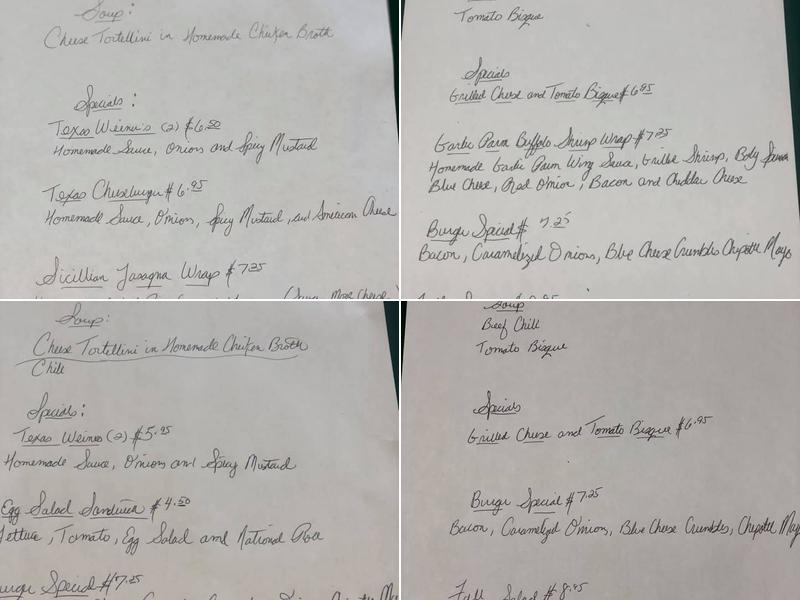 Soup:
Cheese Tortellini in Homemade Chicken Broth
Specials:
Texas Weiners (2) $6.50
Homemade Sauce, Onions and Spicy Mustard
Texas Cheeseburger $6.95
Homemade Sauce, Onions, Spicy Mustard, and American Cheese
Sicillian Lasagna Wrap $7.25
Tomato Bisque
Specials
Grilled Cheese and Tomato Bisque $6.95
Garlic Parm Buffalo Shrimp Wrap $7.25
Homemade Garlic Parm Wing Sauce, Grilled Shrimp, Baby
Blue Cheese, Red Onion, Bacon and Cheddar Cheese
Burger Special $7.25
Bacon, Caramelized Onions, Blue Cheese Crumbles Chipotle Mayo
Soup:
Cheese Tortellini in Homemade Chicken Broth
Chili
Specials:
Texas Weiners (2) $5.95
Homemade Sauce, Onions and Spicy Mustard
Egg Salad Sandwich $4.50
Lettuce, Tomato, Egg Salad and National
Burger Special $7.25
Soup
Beef Chili
Tomato Bisque
Specials
Grilled Cheese and Tomato Bisque $6.95
Burger Special $7.25
Bacon, Caramelized Onions, Blue Cheese Crumbles, Chipotle Mayo
Fall Salad $8.95